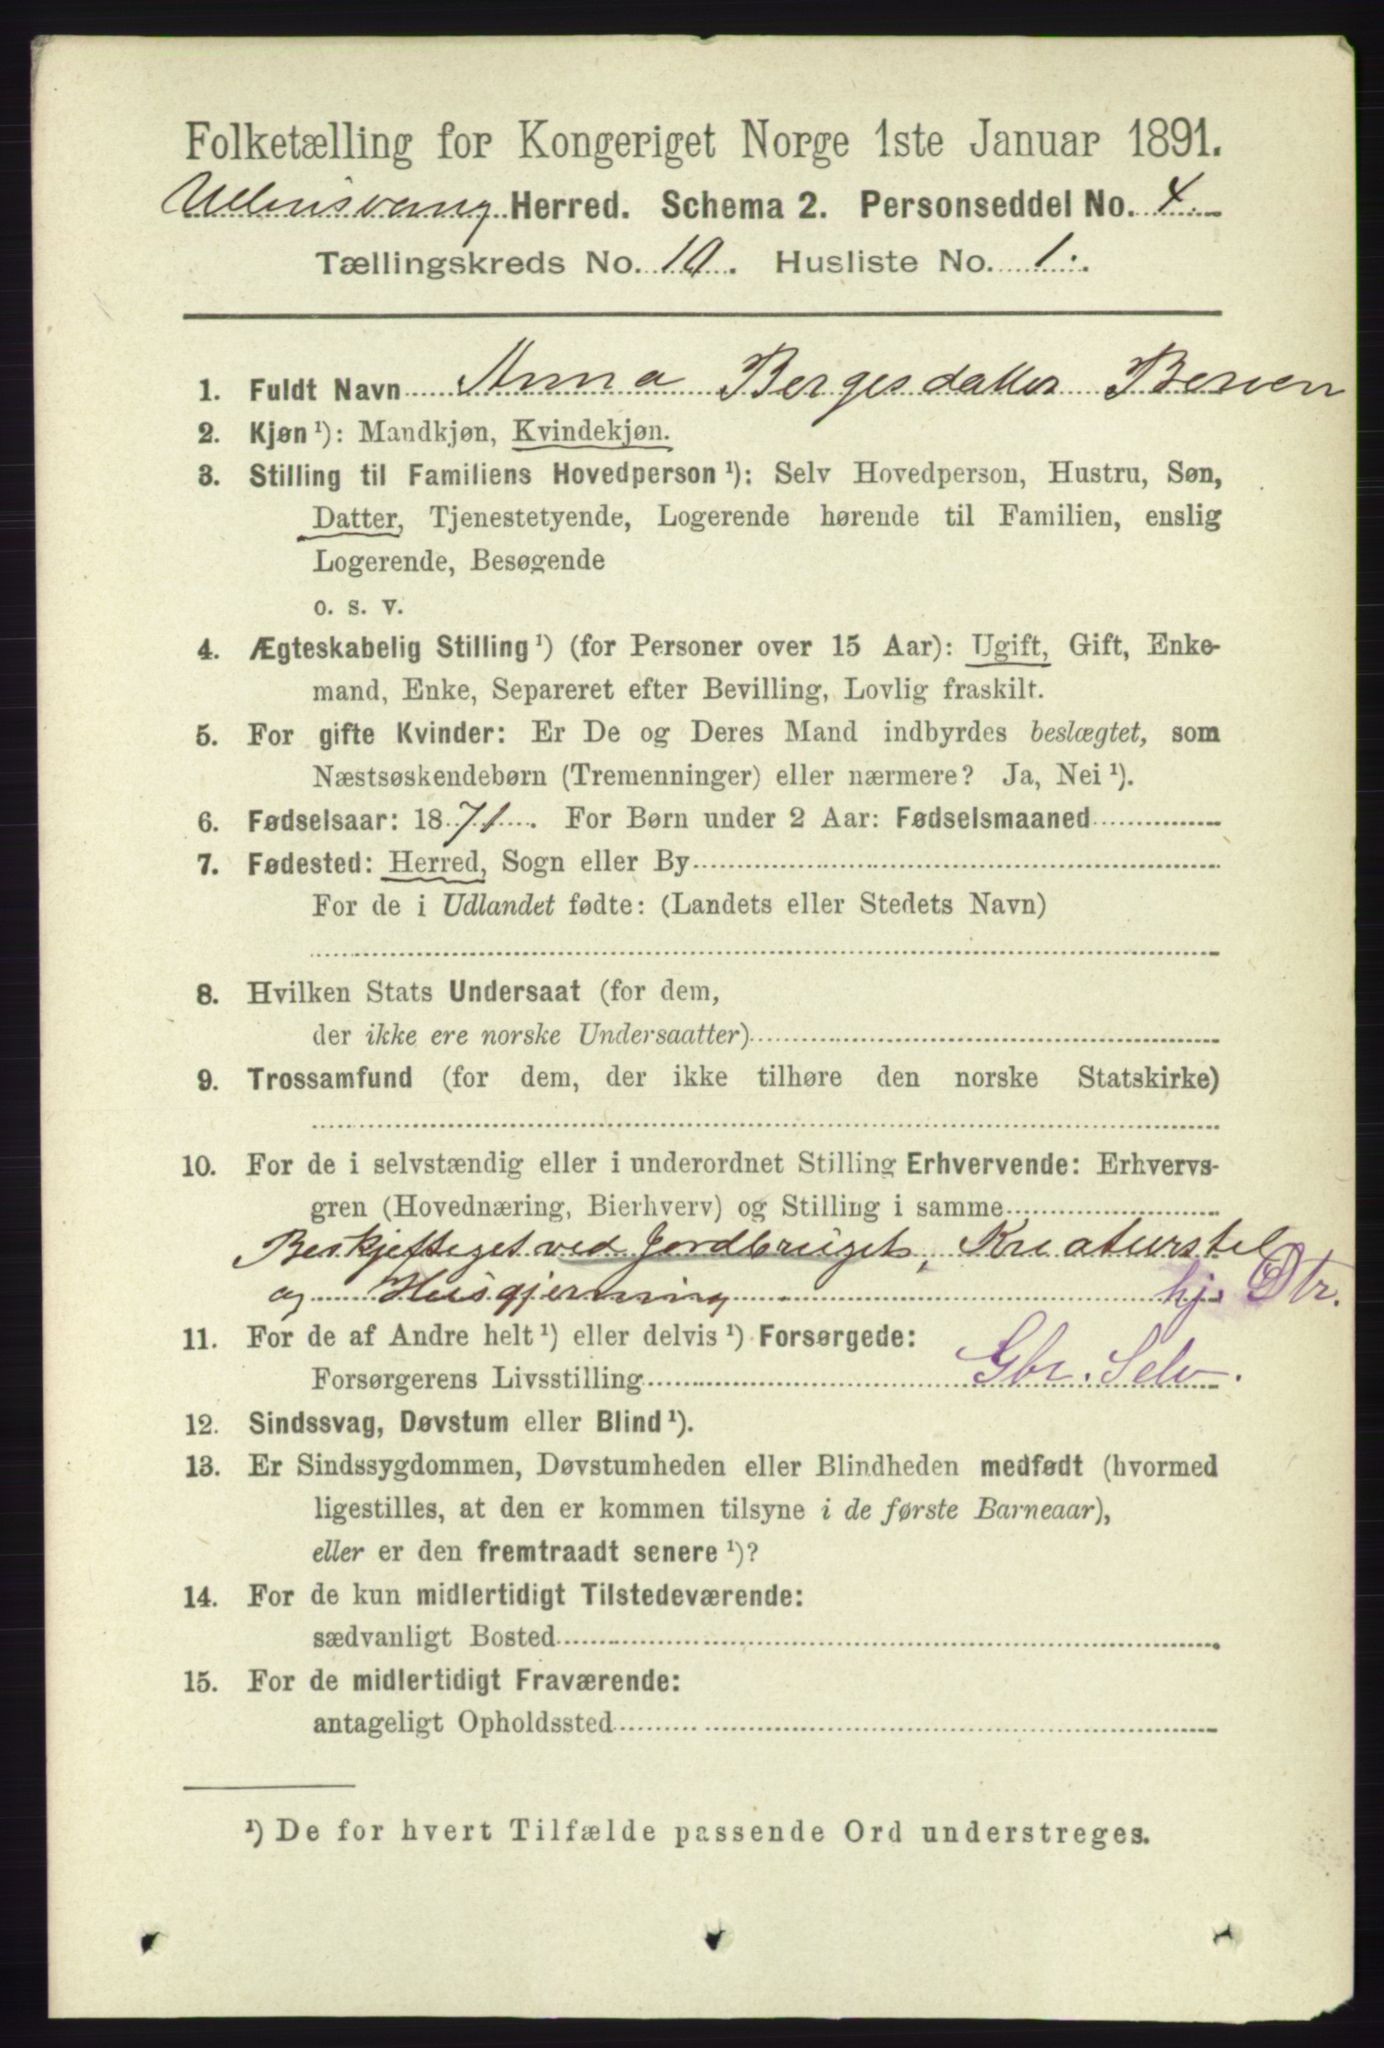 Folketælling for Kongeriget Norge 1ste Januar 1891.
Ullensvang Herred. Schema 2. Personseddel No. 4.
Tællingskreds No. 10. Husliste No. 1.
1. Fuldt Navn Anna Bergesdatter Berven
2. Kjøn ¹): Mandkjøn, Kvindekjøn.
3. Stilling til Familiens Hovedperson ¹): Selv Hovedperson, Hustru, Søn,
Datter, Tjenestetyende, Logerende hørende til Familien, enslig
Logerende, Besøgende
o. s. v.
4. Ægteskabelig Stilling ¹) (for Personer over 15 Aar): Ugift, Gift, Enke-
mand, Enke, Separeret efter Bevilling, Lovlig fraskilt.
5. For gifte Kvinder: Er De og Deres Mand indbyrdes beslægtet, som
Næstsøskendebørn (Tremenninger) eller nærmere? Ja, Nei ¹).
6. Fødselsaar: 1871. For Børn under 2 Aar: Fødselsmaaned
7. Fødested: Herred, Sogn eller By
For de i Udlandet fødte: (Landets eller Stedets Navn)
8. Hvilken Stats Undersaat (for dem,
der ikke ere norske Undersaatter)
9. Trossamfund (for dem, der ikke tilhøre den norske Statskirke)
10. For de i selvstændig eller i underordnet Stilling Erhvervende: Erhvervs-
gren (Hovednæring, Bierhverv) og Stilling i samme
Beskjeftiget ved Jordbruget, Kreaturstel
og Husgjerning hj. Dtr.
11. For de af Andre helt ¹) eller delvis ¹) Forsørgede:
Forsørgerens Livsstilling Gbr. Selv.
12. Sindssvag, Døvstum eller Blind ¹).
13. Er Sindssygdommen, Døvstumheden eller Blindheden medfødt (hvormed
ligestilles, at den er kommen tilsyne i de første Barneaar),
eller er den fremtraadt senere ¹)?
14. For de kun midlertidigt Tilstedeværende:
sædvanligt Bosted
15. For de midlertidigt Fraværende:
antageligt Opholdssted
¹) De for hvert Tilfælde passende Ord understreges.